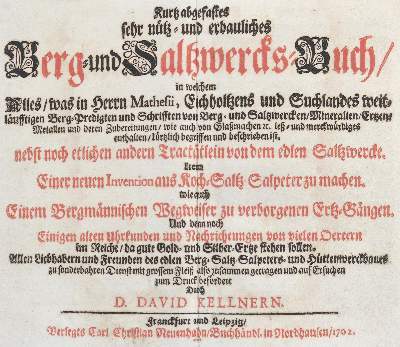 Kurtz abgefastes
sehr nütz- und erbauliches
Berg- und Saltzwercks-Buch/
in welchem
Alles/ was in Herrn Mathesii, Eichholtzens und Suchlandes weit-
läufftigen Berg-Predigten und Schrifften von Berg- und Saltzwercken/ Mineralien/ Ertzen/
Metallen und deren Zubereitungen/ wie auch von Glaßmachen ꝛc. les- und merckwürdiges
enthalten/ kürtzlich begriffen und beschrieben ist.
nebst noch etlichen andern Tractätlein von dem edlen Saltzwercke.
Item
Einer neuen Invention aus Koch-Saltz Salpeter zu machen.
wie auch
Einem Bergmännischen Wegweiser zu verborgenen Ertz-Gängen.
Und denn noch
Einigen alten Uhrkunden und Nachrichtungen von vielen Oertern
im Reiche/ da gute Gold- und Silber-Ertze stehen sollen.
Allen Liebhabern und Freunden des edlen Berg- Saltz- Salpeter- und Hüttenwerckbaues
zu sonderbahren Dienst mit grossem Fleiß also zusammen getragen und auf Ersuchen
zum Druck befördert
Durch
D. DAVID KELLNERN.
Franckfurt und Leipzig/
Verlegts Carl Christian Neuenhahn/ Buchhändl. in Nordhausen/ 1702.